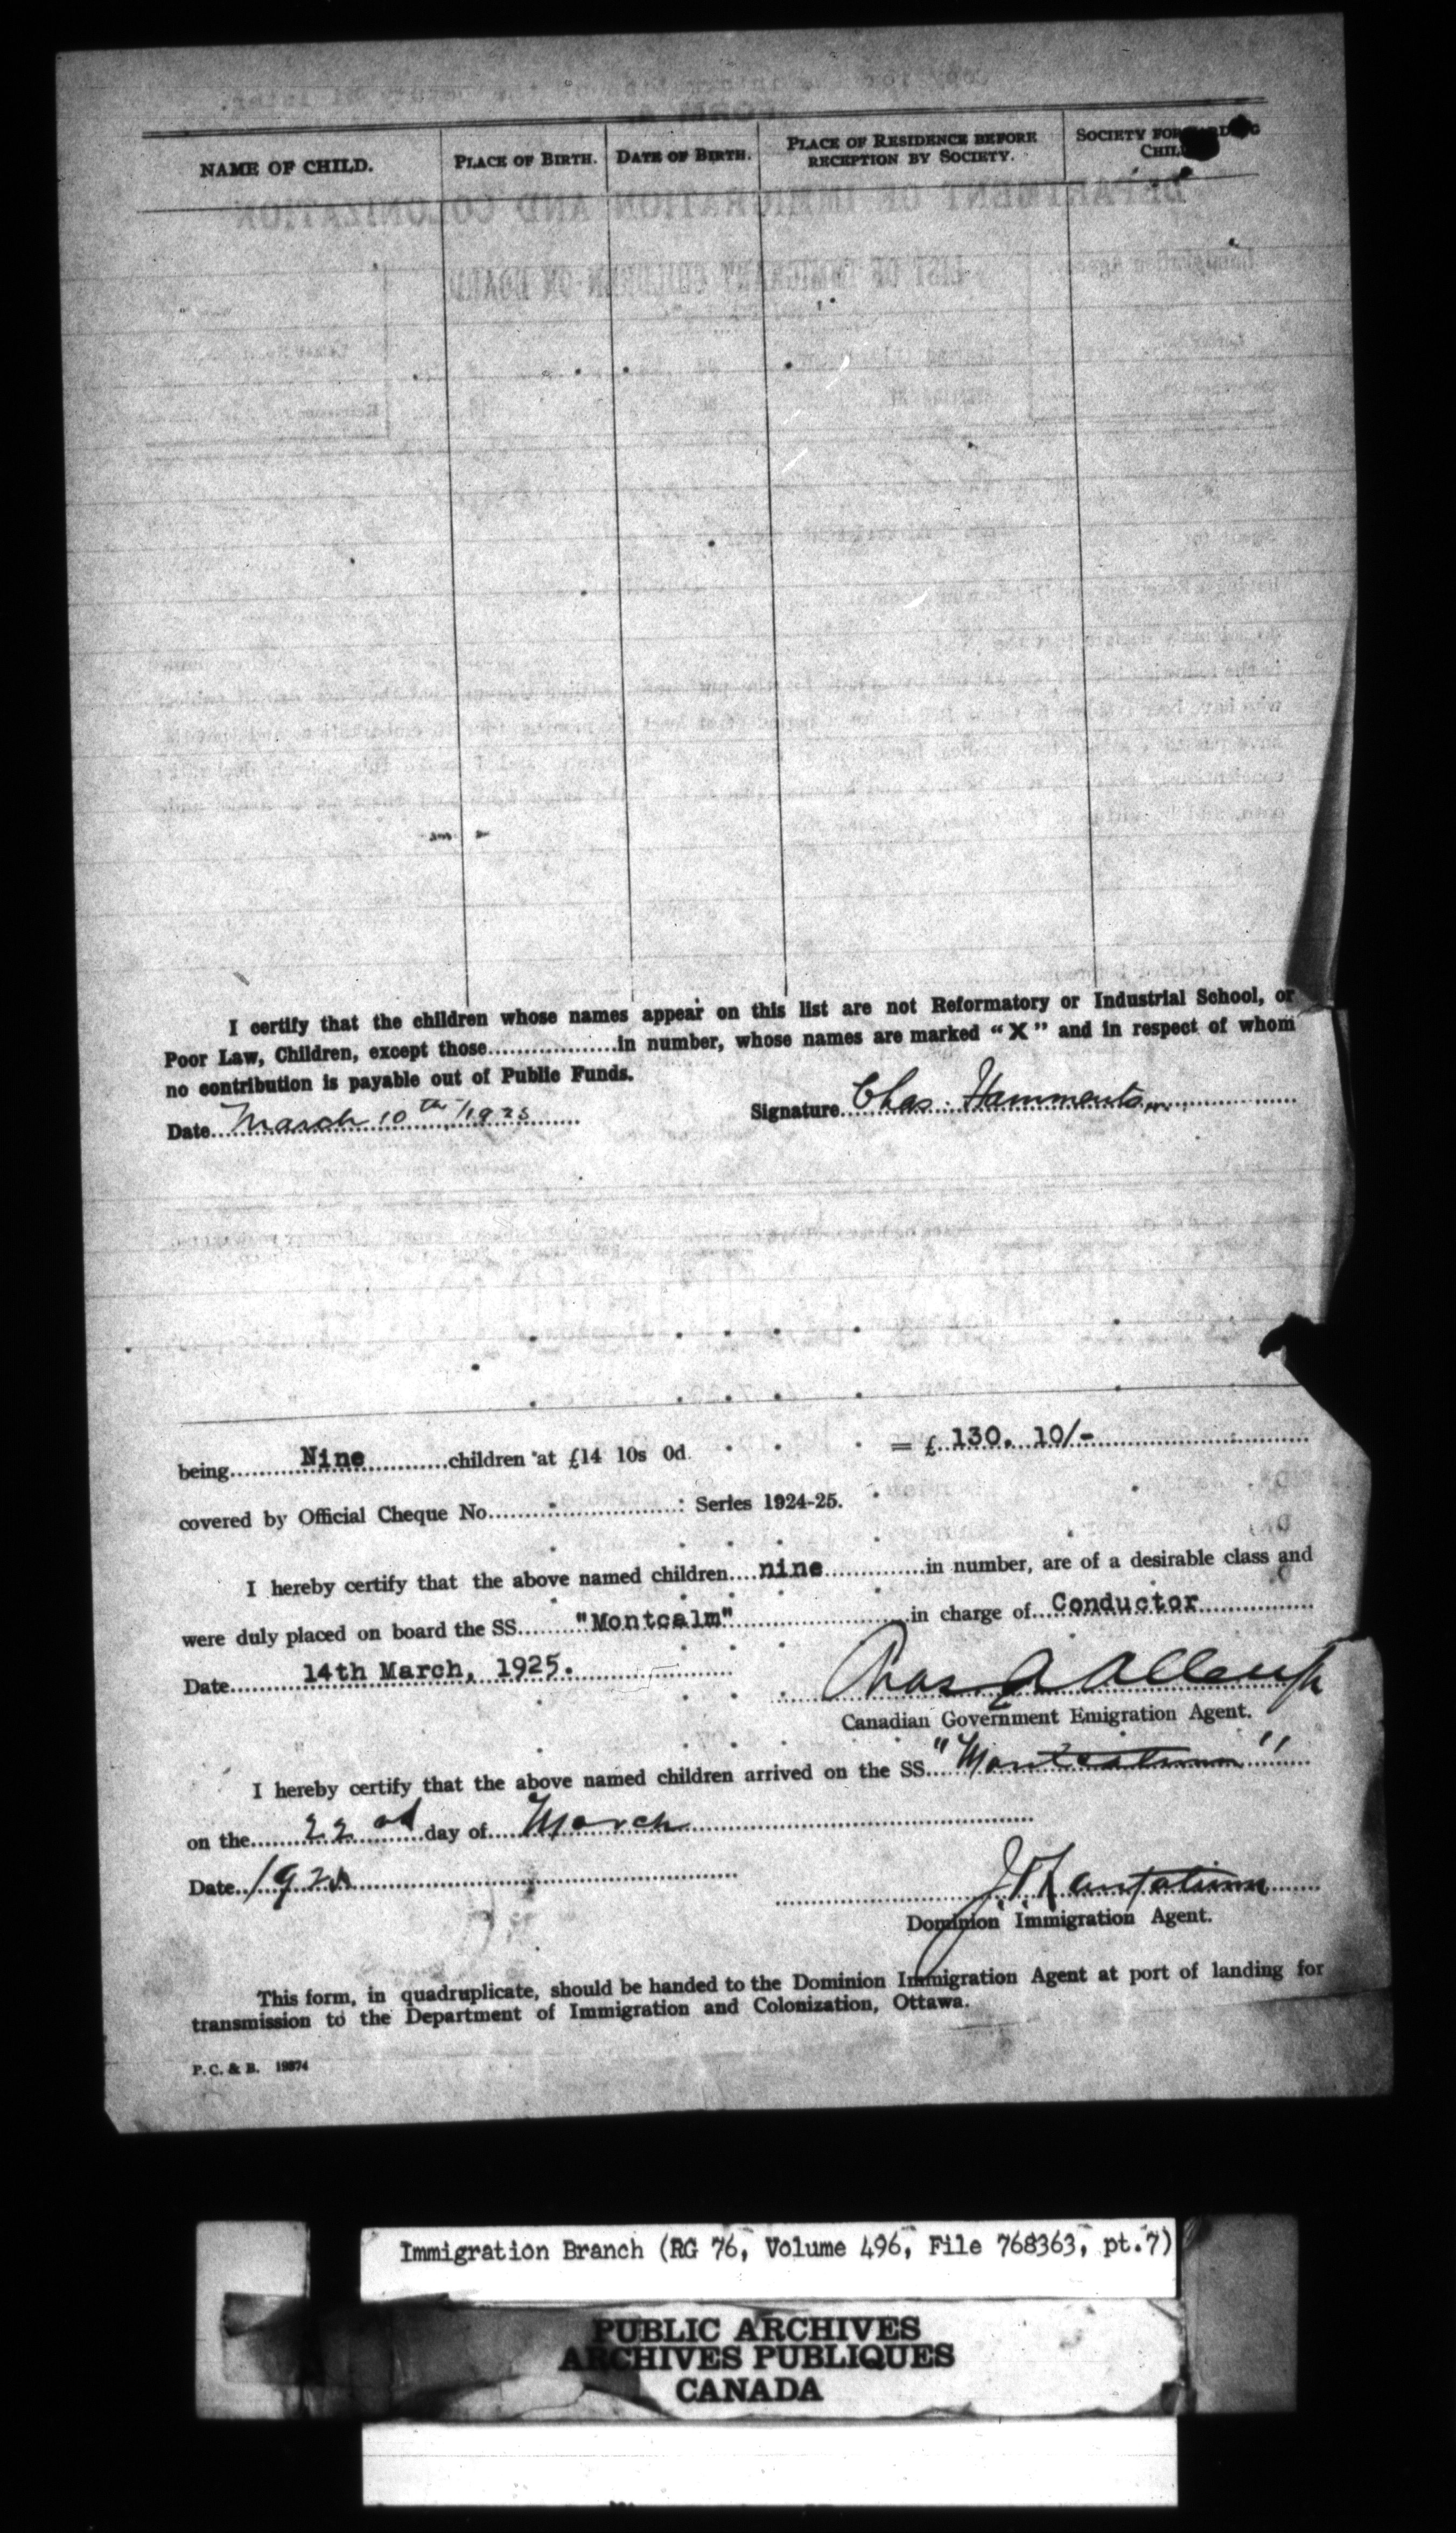 NAME OF CHILD. PLACE OF BIRTH. DATE OF BIRTH. PLACE OF RESIDENCE BEFORE RECEPTION BY SOCIETY. SOCIETY
I certify that the children whose names appear on this list are not Reformatory or Industrial School, or
Poor Law, Children, except those..................in number, whose names are marked “X” and in respect of whom
no contribution is payable out of Public Funds.
Date...March 10th 1925 Signature...Chas. Hamments
being Nine children at £14 10s 0d. = £ 130. 10/-
covered by Official Cheque No. : Series 1924-25.
I hereby certify that the above named children....nine...............in number, are of a desirable class and
were duly placed on board the SS. "Montcalm" in charge of Conductor
Date 14th March, 1925.
Canadian Government Emigration Agent.
I hereby certify that the above named children arrived on the SS.
on the 22nd day of March
Date
Dominion Immigration Agent.
This form, in quadruplicate, should be handed to the Dominion Immigration Agent at port of landing for
transmission to the Department of Immigration and Colonization, Ottawa.
P. C. & B. 19874
Immigration Branch (RG 76, Volume 496, File 768363, pt.7)
PUBLIC ARCHIVES
ARCHIVES PUBLIQUES
CANADA